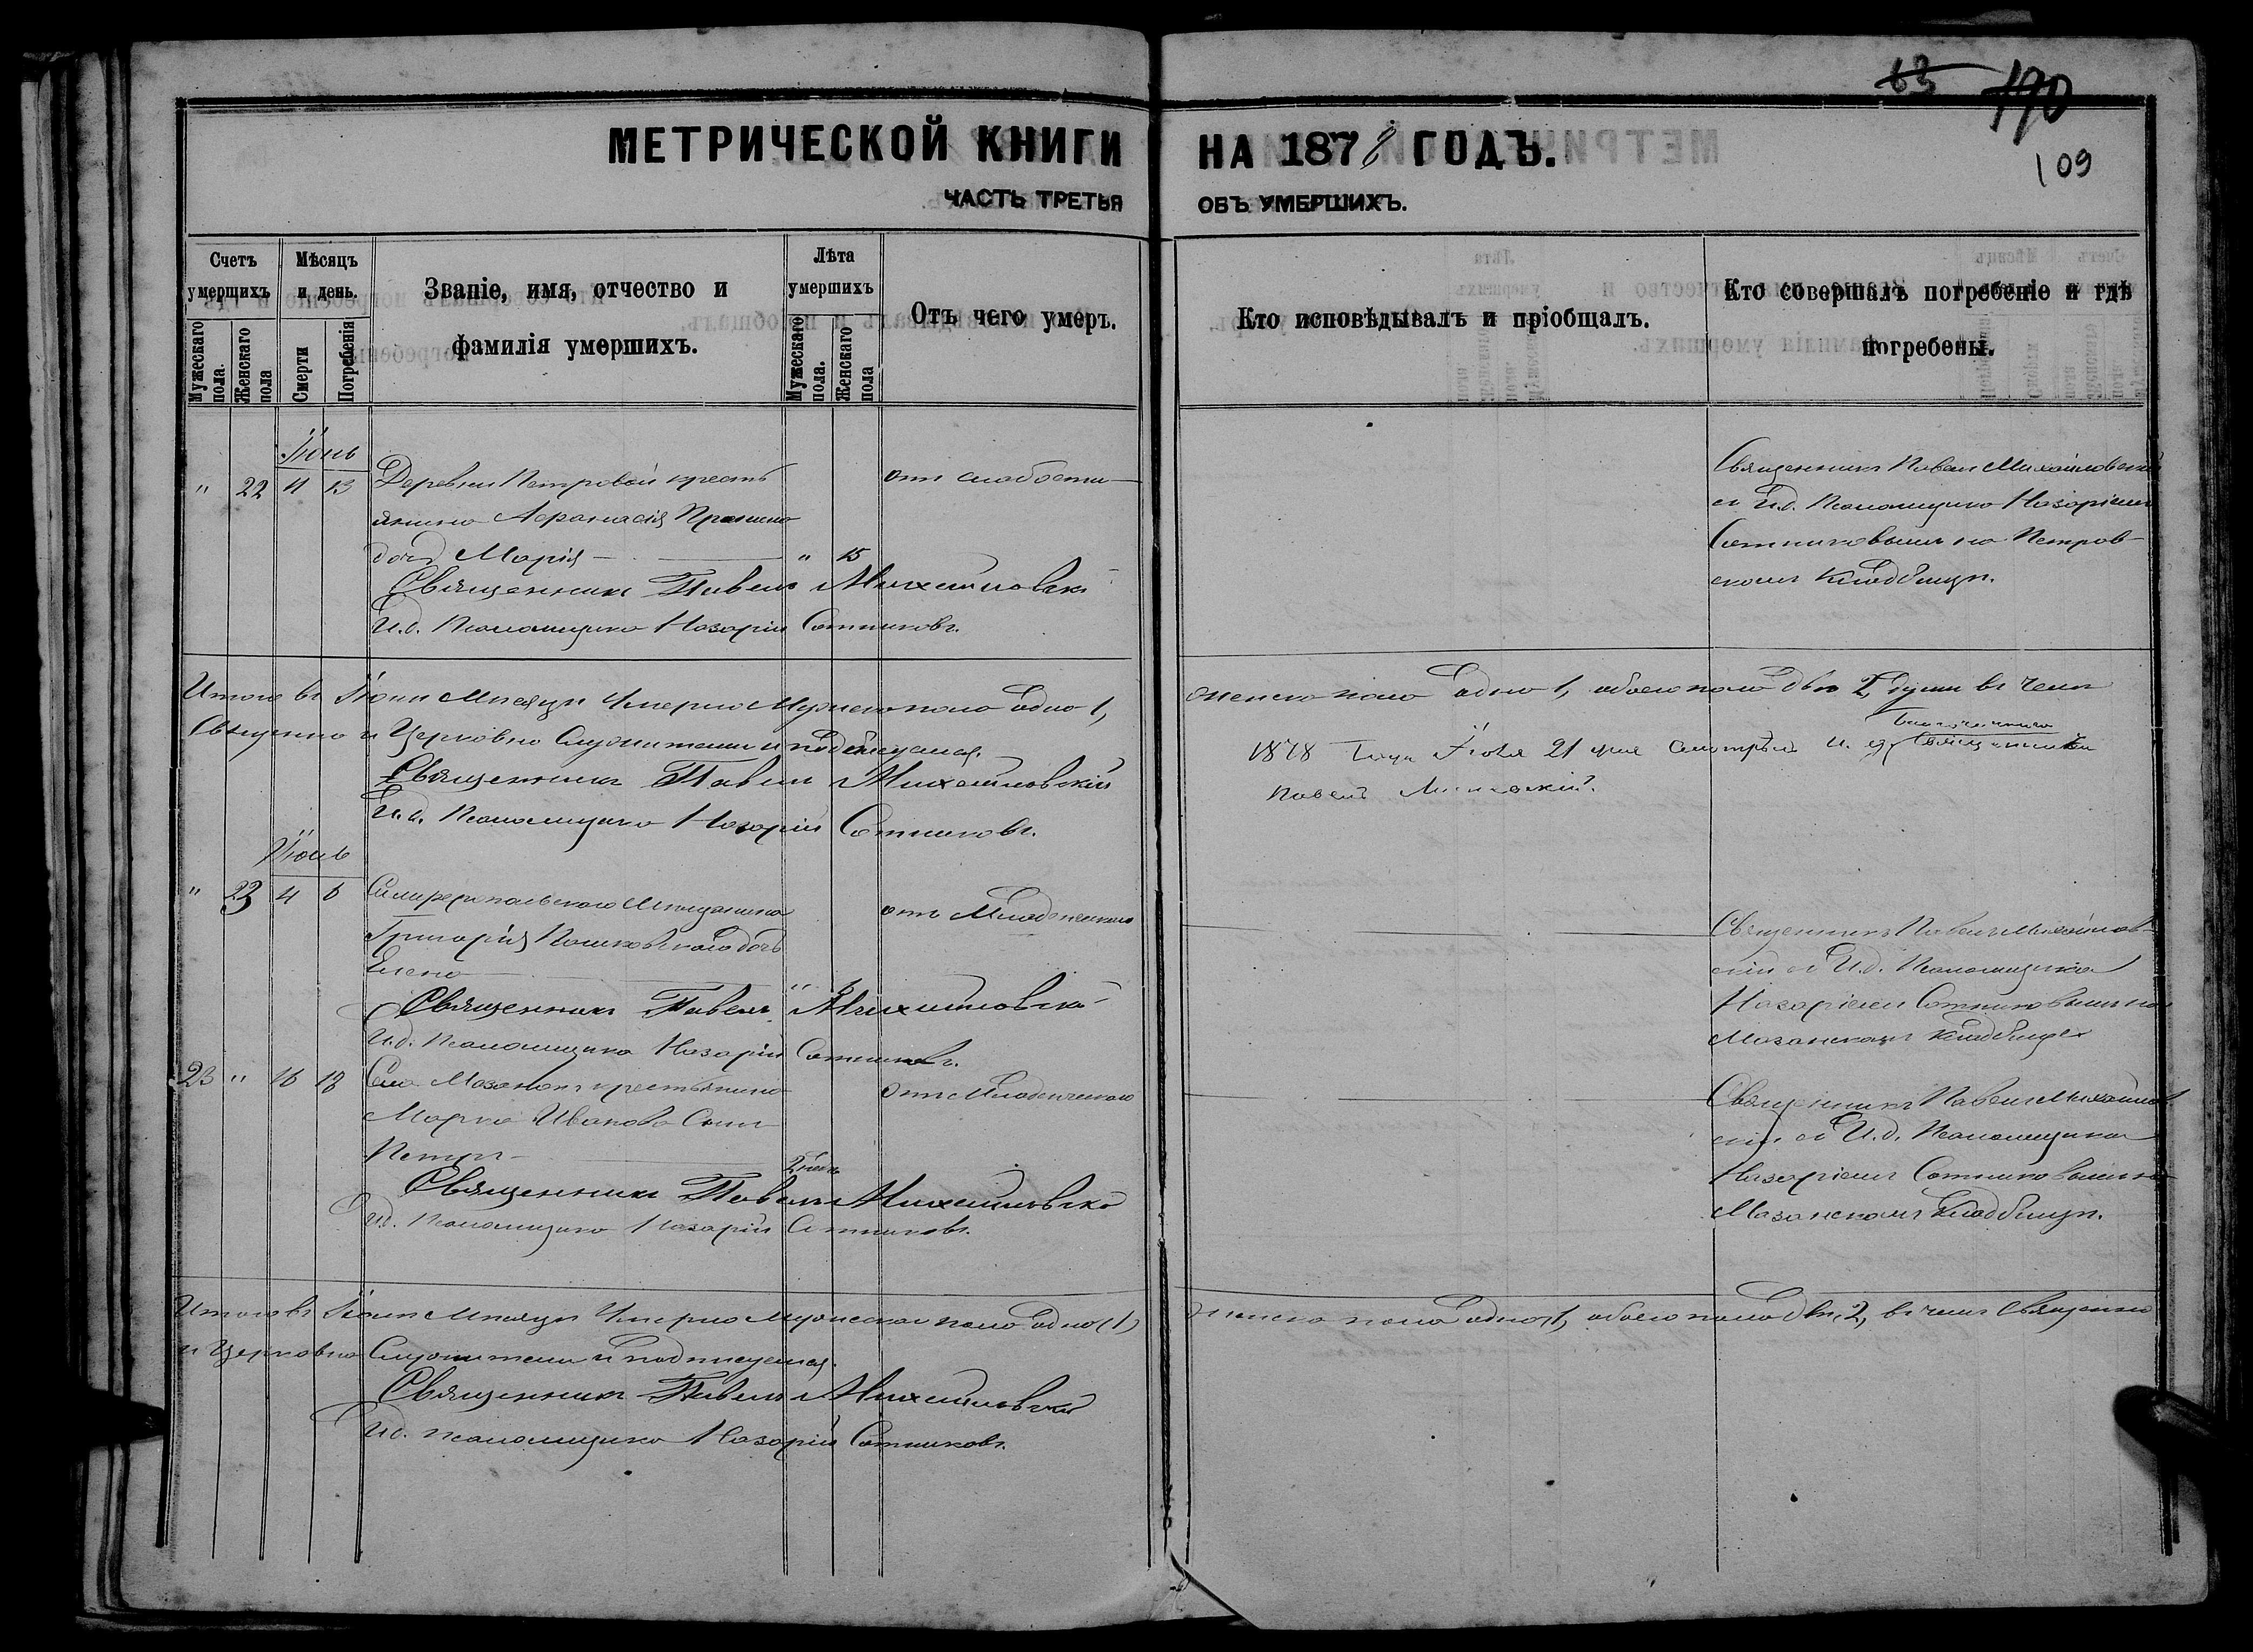 63 190
109
МЕТРИЧЕСКОЙ КНИГИ НА 1878 ГОДЪ.
ЧАСТЬ ТРЕТЬЯ ОБЪ УМЕРШИХЪ.
Счетъ умершихъ
Мужескаго пола.
Женскаго пола
Мѣсяцъ и день.
Смерти
Погребенія
Званіе, имя, отчество и
фамилія умершихъ.
Лѣта умершихъ
Мужескаго пола.
Женскаго пола
Отъ чего умеръ.
Кто исповѣдывалъ и пріобщалъ.
Кто совершалъ погребеніе и гдѣ
погребены.
Іюнь
" 22 11 13 Деревни Петровой кресть
янина Афанасія
дочь Марія " 15
отъ слабости
Священникъ Павелъ Михайловскій
съ И.д. Псаломщика Назаріемъ
Сотниковымъ на Петров-
скомъ кладбищѣ.
Священникъ Павелъ Михайловскій
И.д. Псаломщика Назарій Сотниковъ.
Итого въ Іюнѣ Мѣсяцѣ Умерло Мужеска пола одно 1,
женска пола одно 1, обоего пола двѣ 2, души въ чемъ
Священно и Церковно Служители и подписуемся.
Священникъ Павелъ Михайловскій
И.д. Псаломщика Назарій Сотниковъ.
1878 года Іюля 21 дня смотрѣлъ и. д. Благочиннаго Священникъ
Павелъ
Іюль
" 23 4 6 Симферопольскаго Мѣщанина
Григорія дочь
Елена
отъ Младенческаго
Священникъ Павелъ Михайлов-
скій съ И.д. Псаломщика
Назаріемъ Сотниковымъ на
Мазанскомъ кладбищѣ
Священникъ Павелъ Михайловскій
И.д. Псаломщика Назарій Сотниковъ.
23 " 16 18 Села Мазанки крестьянина
Марка Иванова Сынъ
Петръ
отъ Младенческаго
Священникъ Павелъ Михайлов-
скій съ И.д. Псаломщика
Назаріемъ Сотниковымъ на
Мазанскомъ кладбищѣ.
Священникъ Павелъ Михайловскій
И.д. Псаломщика Назарій Сотниковъ.
Итого въ Іюлѣ Мѣсяцѣ Умерло Мужеска пола одно (1)
женска пола одно 1, обоего пола двѣ 2, въ чемъ Священно
и Церковно Служители и подписуемся.
Священникъ Павелъ Михайловскій
И.д. Псаломщика Назарій Сотниковъ.